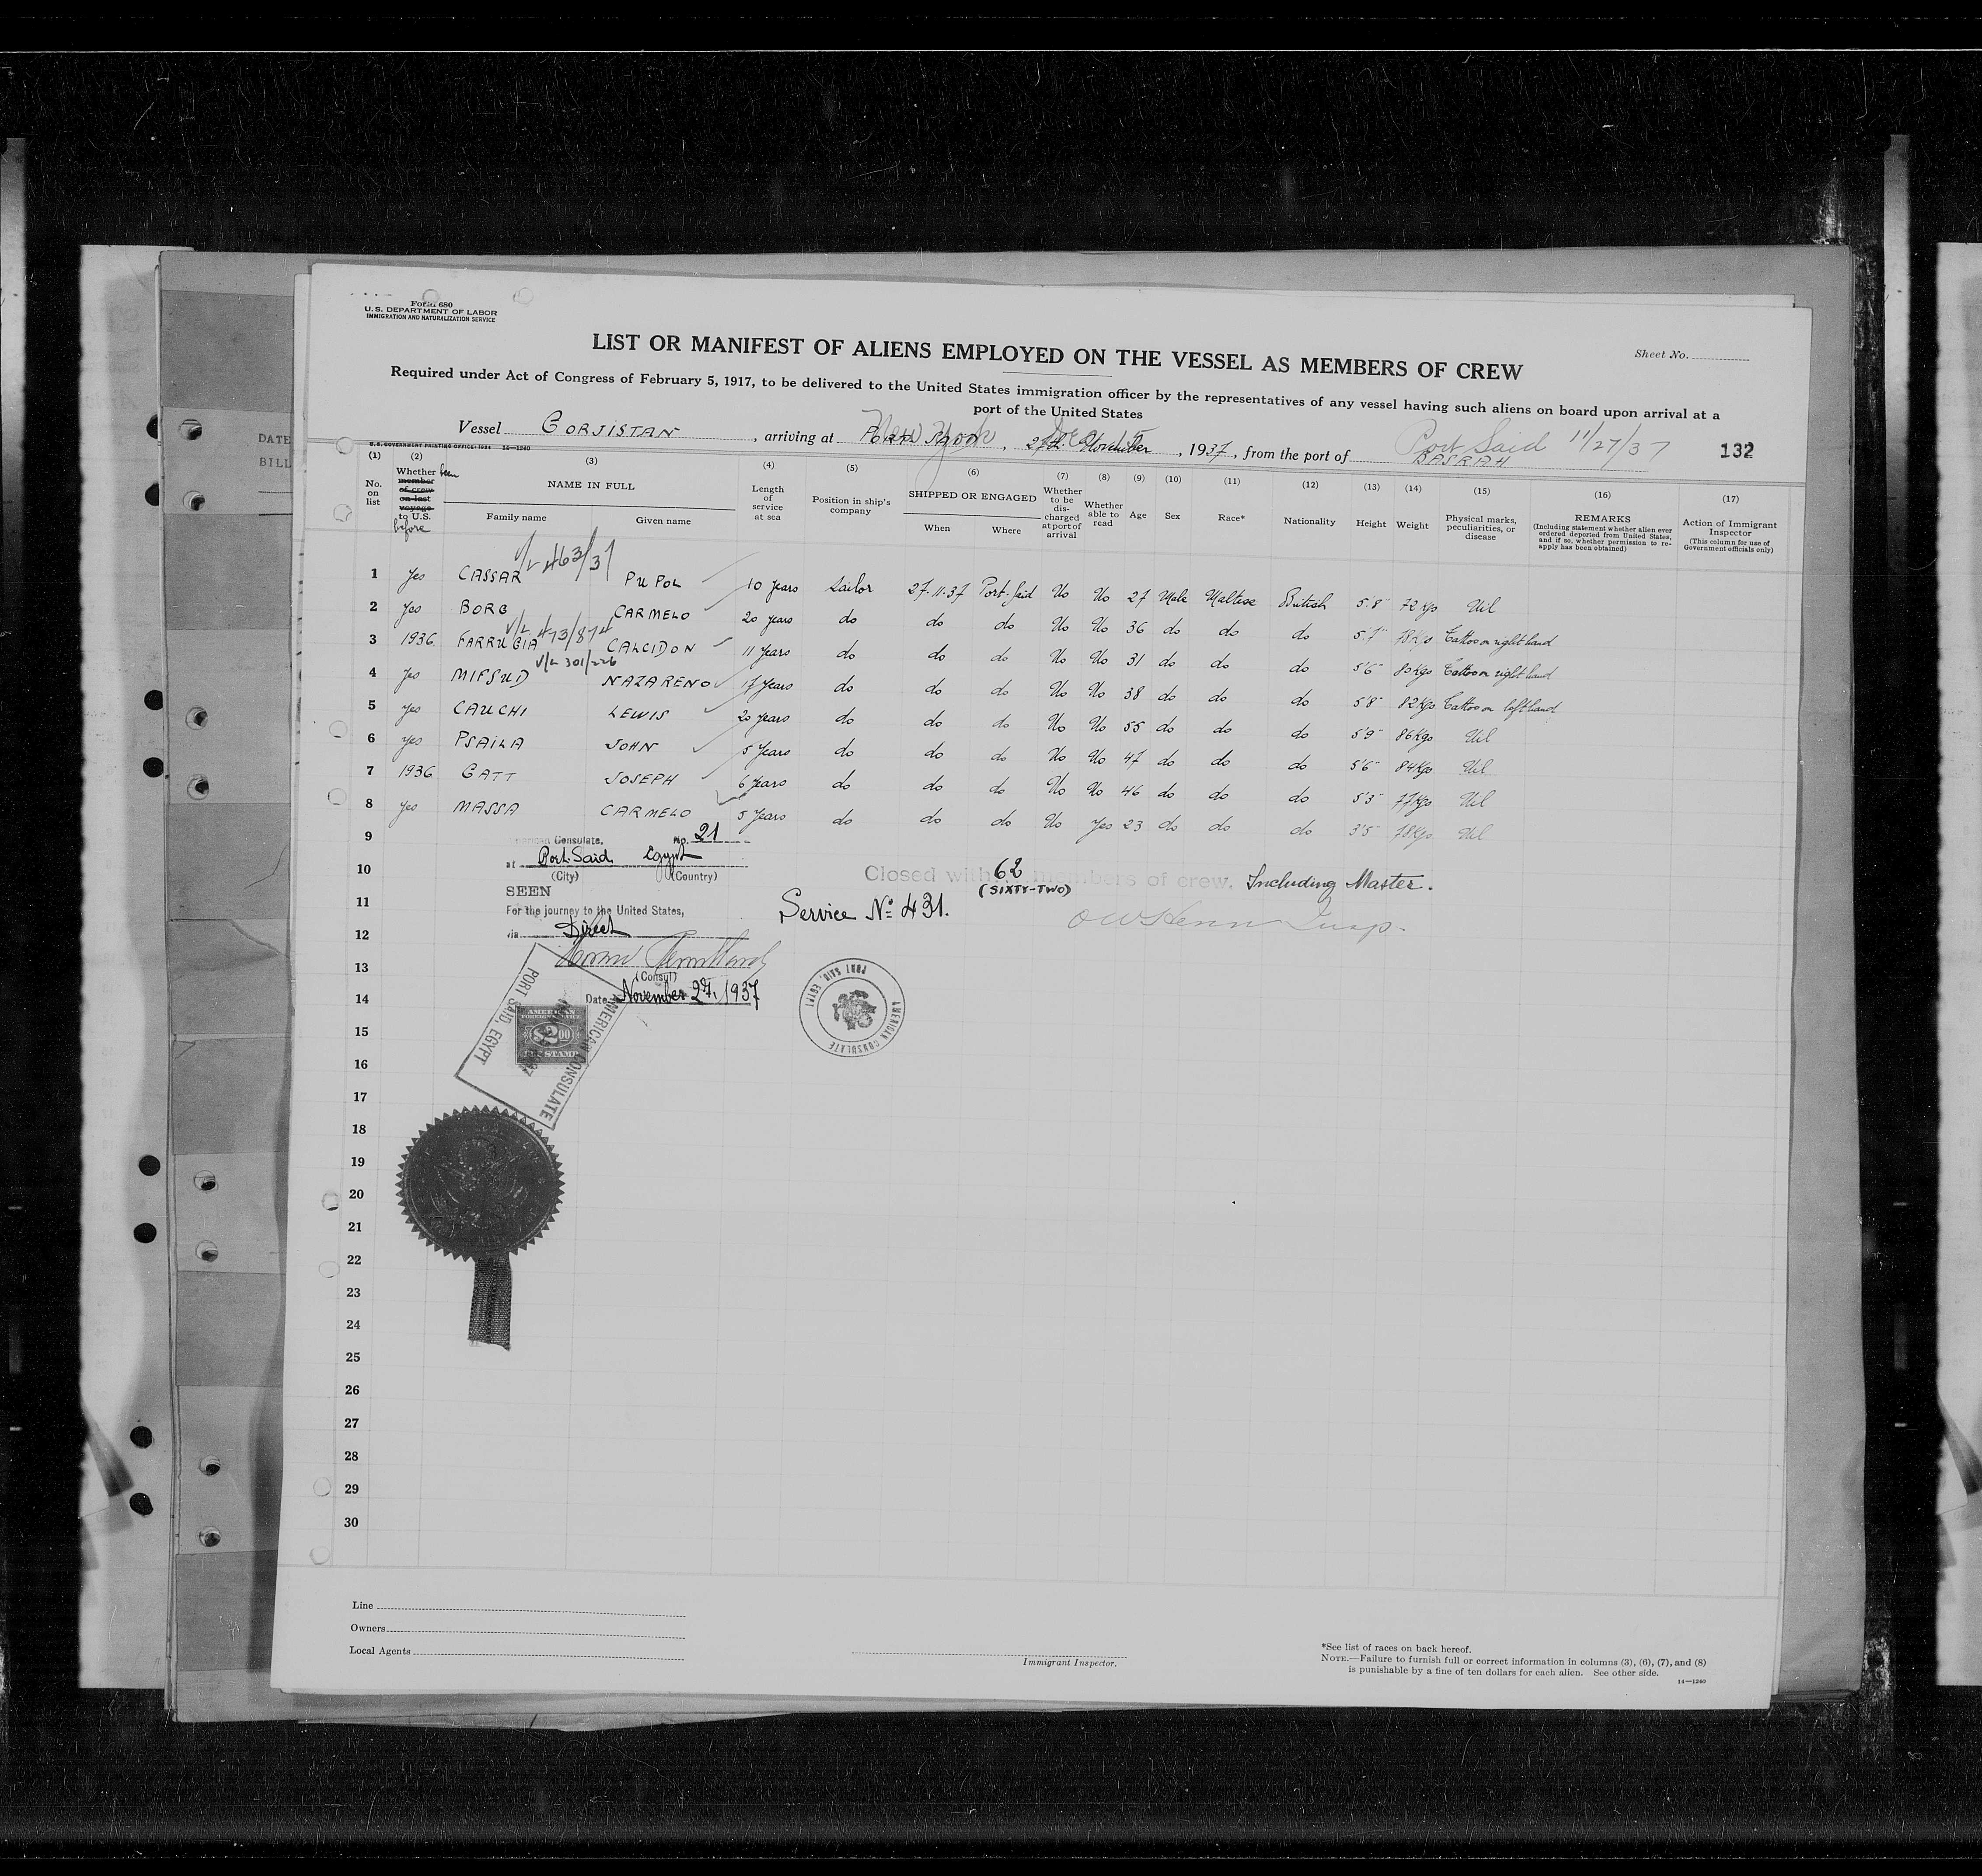 Form 680
U.S. DEPARTMENT OF LABOR
IMMIGRATION AND NATURALIZATION SERVICE
Sheet No.
LIST OR MANIFEST OF ALIENS EMPLOYED ON THE VESSEL AS MEMBERS OF CREW
Required under Act of Congress of February 5, 1917, to be delivered to the United States immigration officer by the representatives of any vessel having such aliens on board upon arrival at a
port of the United States
Vessel GORJISTAN, arriving at New York, 27th November, 1937, from the port of Port Said 11/27/37 BASRAH
132
U.S. GOVERNMENT PRINTING OFFICE: 1934 14—1240
(1) (2) (3) (4) (5) (6) (7) (8) (9) (10) (11) (12) (13) (14) (15) (16) (17)
No. on list
Whether been member of crew on last voyage to U.S. before
NAME IN FULL
Family name Given name
Length of service at sea
Position in ship's company
SHIPPED OR ENGAGED
When Where
Whether to be discharged at port of arrival
Whether able to read
Age
Sex
Race*
Nationality
Height
Weight
Physical marks, peculiarities, or disease
REMARKS
(Including statement whether alien ever ordered deported from United States, and if so, whether permission to reapply has been obtained)
Action of Immigrant Inspector
(This column for use of Government officials only)
V/L 463/31
1 Yes CASSAR PUPOL 10 years Sailor 27.11.37 Port-Said No No 27 Male Maltese British 5'8" 72 Kgs Nil
2 Yes BORG CARMELO 20 years do do do No No 36 do do do 5'7" 78 Kgs Tattoo on right hand
V/L 473/874
3 1936 FARRUGIA CALCIDON 11 years do do do No No 31 do do do 5'6" 80 Kgs Tattoo on right hand
V/L 301/226
4 Yes MIFSUD NAZARENO 17 years do do do No No 38 do do do 5'8" 82 Kgs Tattoo on left hand
5 Yes CAUCHI LEWIS 20 years do do do No No 55 do do do 5'9" 86 Kgs Nil
6 Yes PSAILA JOHN 5 years do do do No No 47 do do do 5'6" 84 Kgs Nil
7 1936 GATT JOSEPH 6 years do do do No No 46 do do do 5'3" 77 Kgs Nil
8 Yes MASSA CARMELO 5 years do do do No Yes 23 do do do 3'5 78 Kgs Nil
9
10
11
12
13
14
15
16
17
18
19
20
21
22
23
24
25
26
27
28
29
30
American Consulate. No. 21
at Port-Said Egypt
(City) (Country)
SEEN
For the journey to the United States,
via Direct
(Consul)
Date November 27, 1937
Closed with 62 members of crew, Including Master.
(SIXTY-TWO)
Service No. 431.
AMERICAN CONSULATE
PORT SAID, EGYPT
AMERICAN FOREIGN SERVICE
$2.00
FEE STAMP
AMERICAN CONSULATE
PORT SAID, EGYPT
DATE
BILL
Line
Owners
Local Agents
Immigrant Inspector.
*See list of races on back hereof.
NOTE.—Failure to furnish full or correct information in columns (3), (6), (7), and (8)
is punishable by a fine of ten dollars for each alien. See other side.
14—1240